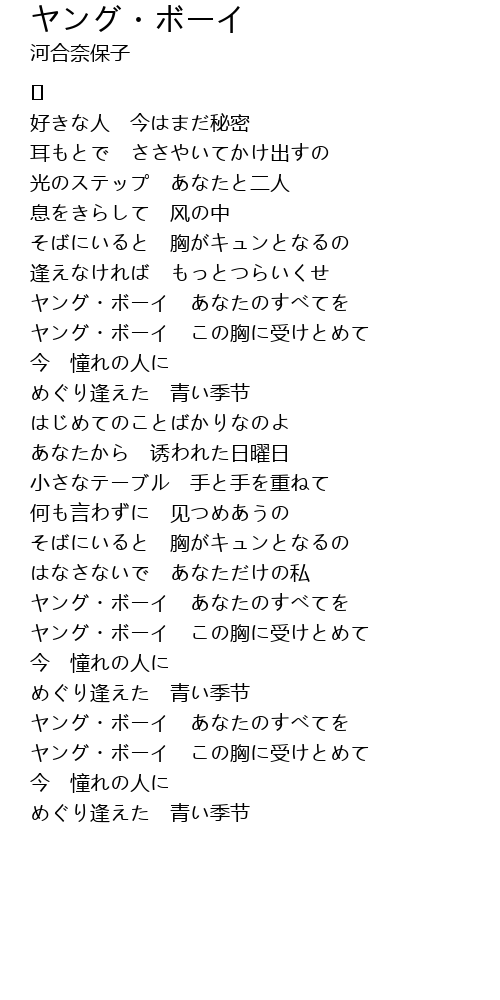 ヤング・ボーイ
河合奈保子
好きな人　今はまだ秘密
耳もとで　ささやいてかけ出すの
光のステップ　あなたと二人
息をきらして　风の中
そばにいると　胸がキュンとなるの
逢えなければ　もっとつらいくせ
ヤング・ボーイ　あなたのすべてを
ヤング・ボーイ　この胸に受けとめて
今　憧れの人に
めぐり逢えた　青い季节
はじめてのことばかりなのよ
あなたから　诱われた日曜日
小さなテーブル　手と手を重ねて
何も言わずに　见つめあうの
そばにいると　胸がキュンとなるの
はなさないで　あなただけの私
ヤング・ボーイ　あなたのすべてを
ヤング・ボーイ　この胸に受けとめて
今　憧れの人に
めぐり逢えた　青い季节
ヤング・ボーイ　あなたのすべてを
ヤング・ボーイ　この胸に受けとめて
今　憧れの人に
めぐり逢えた　青い季节